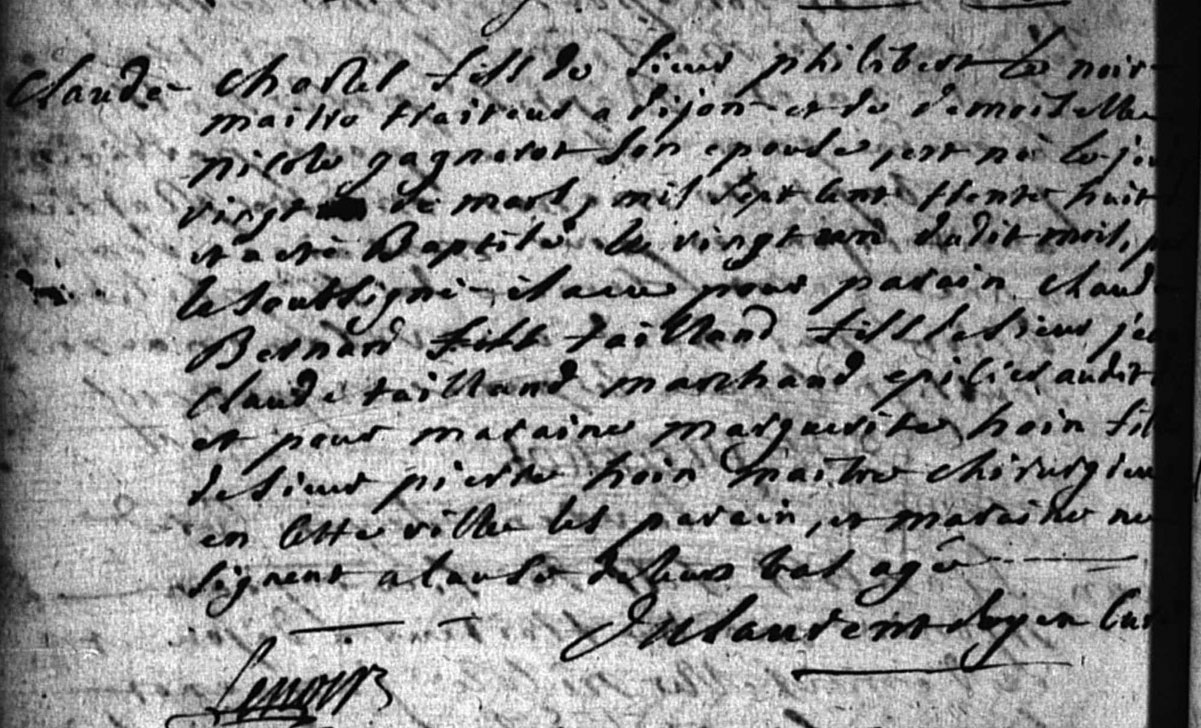 Claude Charles fils de sieur philibert Le noir
maitre traiteur a dijon et de demoiselle
nicole gagnerot son epouse, est né le jeu
vingt de mars, mil sept cent trente huit
et a eté Baptisé le vingt un dudit mois, par
le soussigné il a eu pour parain claude
Bernard fils tailland fils de sieur jean
claude tailland marchand epicier audit
et pour maraine marguerite hoin fille
de sieur pierre hoin maitre chirurgien
en cette ville les parain, et maraine ne
signent a cause de leurs bas age
laurent doyen Curé
Lenoir